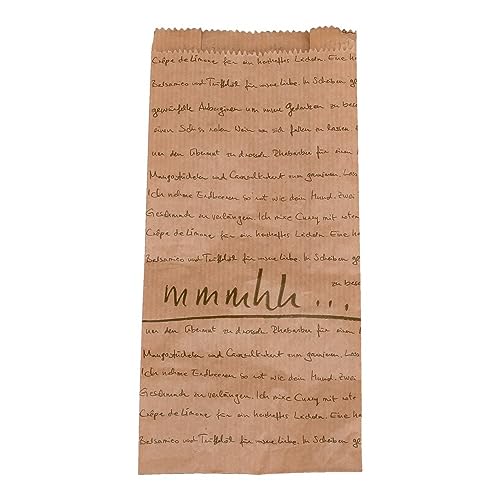 Crêpe de Limone für ein herzhaftes Lächeln. Eine h
Balsamico und Trüffelöl für unsere Liebe. In Scheiben
gewürfelte Auberginen um unsere Gedanken zu bese
einen Schuss roten Wein um sich fallen zu lassen.
um den Übermut zu drosseln. Rhabarber für einen
Mangostückchen und Camembert zum garnieren. Lass
Ich nehme Erdbeeren so rot wie dein Mund. Zwei
Geschmunde zu verlängern. Ich mixe Curry mit rotem
Crêpe de Limone für ein herzhaftes Lächeln. Eine ha
Balsamico und Trüffelöl für unsere Liebe. In Scheiben ge
zu bese
mmmhh...
um den Übermut zu drosseln. Rhabarber für einen
Mangostückchen und Camembert zum garnieren. Lass
Ich nehme Erdbeeren so rot wie dein Mund. Zwei
zu verlängern. Ich mixe Curry mit rote
Crêpe de Limone für ein herzhaftes Lächeln. Eine ha
Balsamico und Trüffelöl für unsere Liebe. In Scheiben ge